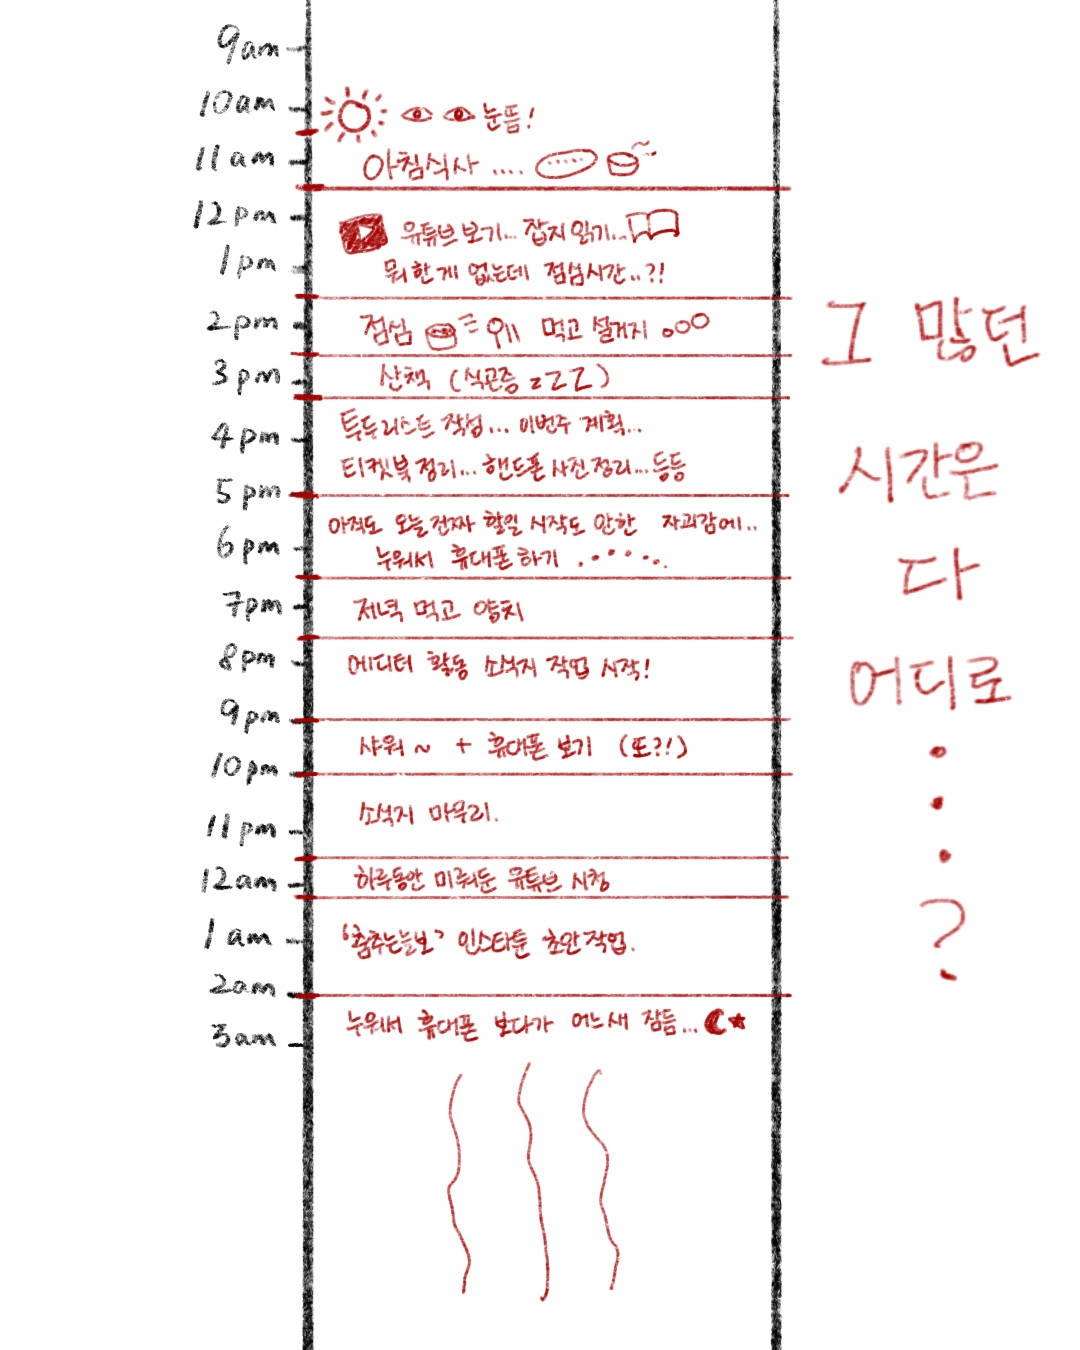 9am
10am
눈뜸!
11am
아침식사 ....
12pm
유튜브 보기... 잡지 읽기...
1pm
뭐 한 게 없는데 점심시간..?!
2pm
점심 먹고 설거지
3pm
산책 (식곤증 zZZZ)
4pm
투두리스트 작성... 이번주 계획...
티켓북 정리... 핸드폰 사진 정리... 등등
5pm
아직도 오늘 진짜 할일 시작도 안한 자괴감에..
6pm
누워서 휴대폰 하기 .......
7pm
저녁 먹고 양치
8pm
에디터 활동 소식지 작업 시작!
9pm
샤워 ~ + 휴대폰 보기 (또?!)
10pm
소식지 마무리.
11pm
12am
하루동안 미뤄둔 유튜브 시청
1am
'춤추는늘보' 인스타툰 초안작업.
2am
누워서 휴대폰 보다가 어느새 잠듦...
3am
그 많던
시간은
다
어디로
.
.
.
?